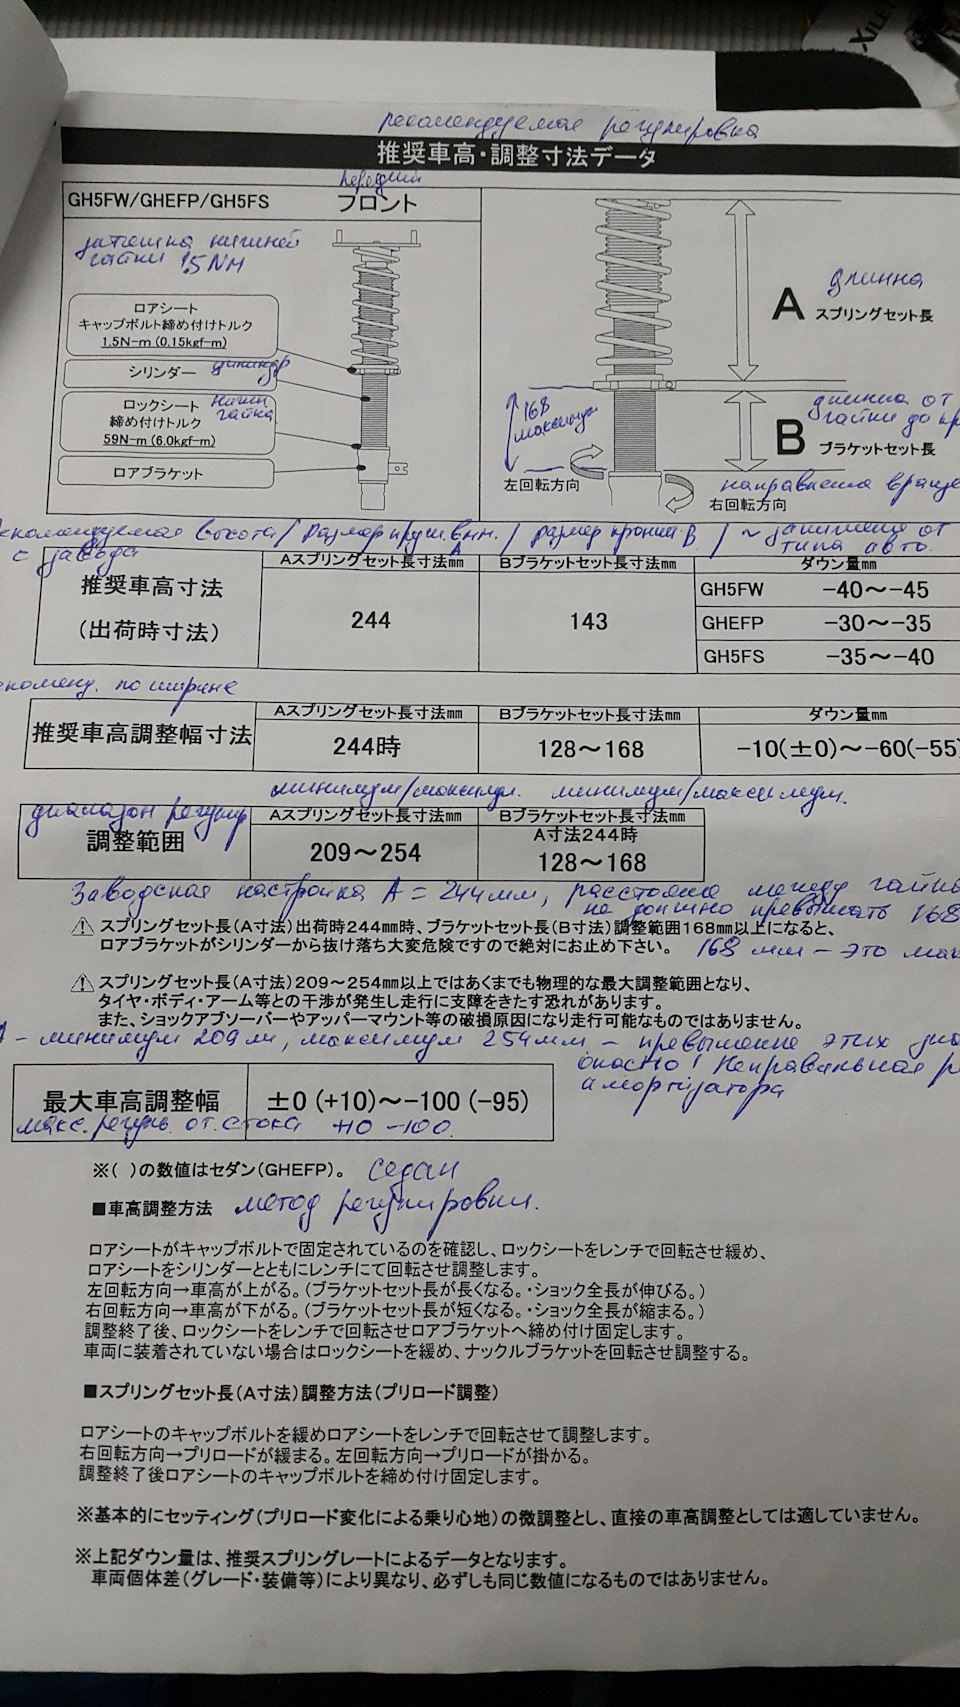 XILE
рекомендуемая регулировка
推奨車高・調整寸法データ
передний
GH5FW/GHEFP/GH5FS
フロント
затяшка нижней
гайки 1.5 NM
ロアシート
キャップボルト締め付けトルク
1.5N-m (0.15kgf-m)
シリンダー цилиндр
ロックシート нижн.
締め付けトルク гайка
59N-m (6.0kgf-m)
ロアブラケット
длинна
A スプリングセット長
168
максимум
длинна от
гайки до кр
B ブラケットセット長
左回転方向
направление враще
右回転方向
екомендуемая высота / размер пруж. внн. A / размер кроншт. B. / ~ занижение от
с завода
типа авто.
推奨車高寸法
(出荷時寸法)
Aスプリングセット長寸法mm
Bブラケットセット長寸法mm
ダウン量mm
244
143
GH5FW -40～-45
GHEFP -30～-35
GH5FS -35～-40
екоменд. по ширине
推奨車高調整幅寸法
Aスプリングセット長寸法mm
Bブラケットセット長寸法mm
ダウン量mm
244時
128～168
-10(±0)～-60(-55)
минимум/максимум. минимум/максимум.
диапазон регулир
調整範囲
Aスプリングセット長寸法mm
Bブラケットセット長寸法mm
A寸法244時
209～254
128～168
Заводская настройка A = 244мм, расстояние между гайка
не должно превышать 168
⚠ スプリングセット長(A寸法)出荷時244mm時、ブラケットセット長(B寸法)調整範囲168mm以上になると、
ロアブラケットがシリンダーから抜け落ち大変危険ですので絶対にお止め下さい。
168 мм - это мак
⚠ スプリングセット長(A寸法)209～254mm以上ではあくまでも物理的な最大調整範囲となり、
タイヤ・ボディ・アーム等との干渉が発生し走行に支障をきたす恐れがあります。
また、ショックアブソーバーやアッパーマウント等の破損原因になり走行可能なものではありません。
А - минимум 209 м, максимум 254 мм - превышение этих
опасно! Неправильная р
амортизатора
最大車高調整幅
±0 (+10)～-100 (-95)
макс. регул. от. стока +10 -100.
※( )の数値はセダン(GHEFP)。 седан
■車高調整方法 метод регулировки.
ロアシートがキャップボルトで固定されているのを確認し、ロックシートをレンチで回転させ緩め、
ロアシートをシリンダーとともにレンチにて回転させ調整します。
左回転方向→車高が上がる。(ブラケットセット長が長くなる。・ショック全長が伸びる。)
右回転方向→車高が下がる。(ブラケットセット長が短くなる。・ショック全長が縮まる。)
調整終了後、ロックシートをレンチで回転させロアブラケットへ締め付け固定します。
車両に装着されていない場合はロックシートを緩め、ナックルブラケットを回転させ調整する。
■スプリングセット長(A寸法)調整方法(プリロード調整)
ロアシートのキャップボルトを緩めロアシートをレンチで回転させて調整します。
右回転方向→プリロードが緩まる。左回転方向→プリロードが掛かる。
調整終了後ロアシートのキャップボルトを締め付け固定します。
※基本的にセッティング(プリロード変化による乗り心地)の微調整とし、直接の車高調整としては適していません。
※上記ダウン量は、推奨スプリングレートによるデータとなります。
車両個体差(グレード・装備等)により異なり、必ずしも同じ数値になるものではありません。